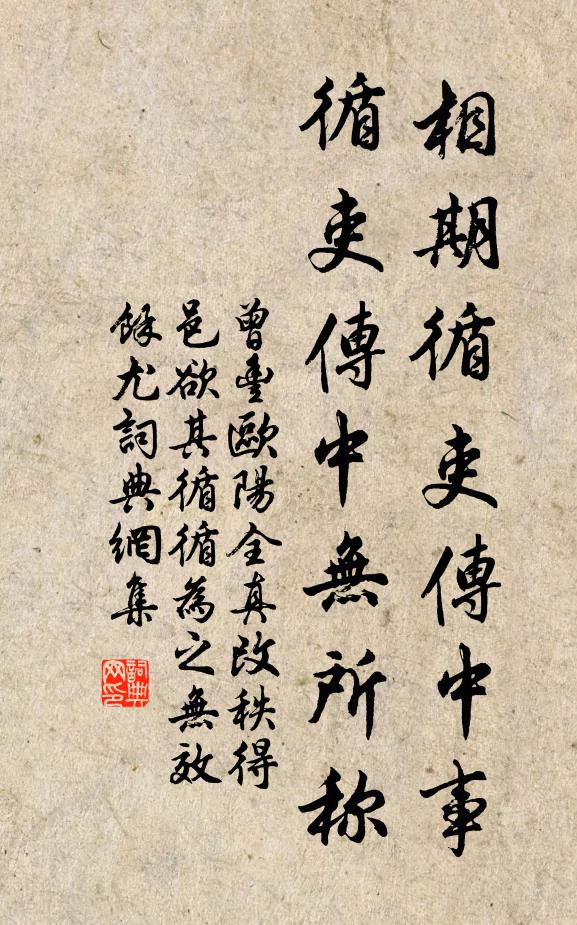 相期循吏傳中事
循吏傳中無所称
曾豊歐陽全真改秩得
邑欲其循循為之無效
餘尤詞典網集
詞典
网印